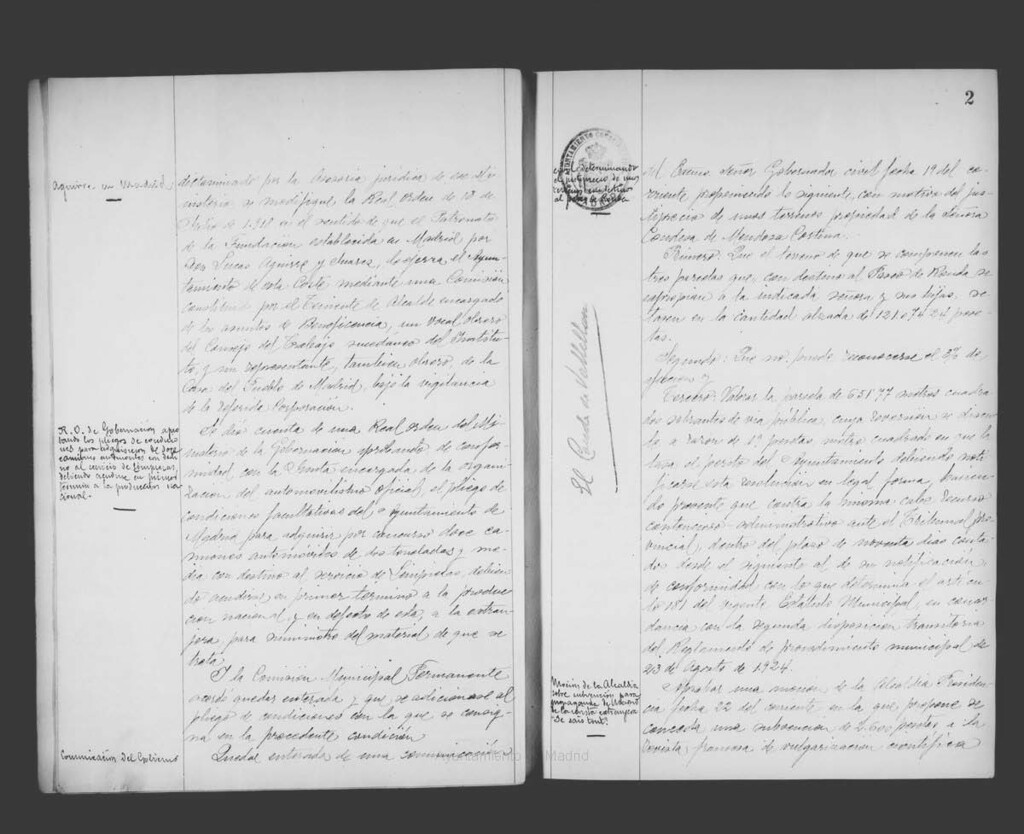 Aguirre en Madrid
determinado por la Asesoría jurídica de ese Mi-
nisterio se modifique la Real Orden de 18 de
de 1918 en el sentido de que el Patronato
de la Fundación establecida en Madrid por
Don Lucas Aguirre y Juarez, lo ejerza el Ayun-
tamiento de esta Corte mediante una Comisión
constituida por el Teniente de Alcalde encargado
de los asuntos de Beneficencia, un Vocal obrero
del Consejo del Trabajo, sucedaneo del Institu-
to, y un representante, tambien obrero, de la
Casa del Pueblo de Madrid, bajo la vigilancia
de la referida Corporación.
R. O. de Gobernación apro-
bando los pliegos de condicio-
nes para adquisicion de doce
camiones automoviles con desti-
no al servicio de Limpiezas,
debiendo acudirse en primer
término a la produccion na-
cional.-
Se dió cuenta de una Real orden del Mi-
nisterio de la Gobernación aprobando de confor-
midad con la Junta encargada de la organi-
zacion del automovilismo oficial, el pliego de
condiciones facultativas del Ayuntamiento de
Madrid para adquirir por concurso doce ca-
miones automóviles de dos toneladas y me-
dia, con destino al servicio de Limpiezas, debien-
do acudirse, en primer termino a la produc-
cion nacional, y en defecto de esta, a la extran-
jera, para suministro del material de que se
trata.
Y la Comisión Municipal Permanente
acordó quedar enterada, y que se adicionase al
pliego de condiciones con la que se consig-
na en la precedente condición
Comunicación del Gobierno
Quedar enterada de una comunicación
2
AYUNTAMIENTO
civil determinando
el justiprecio de unos
terrenos con destino
al paseo de Ronda
del Excmo. Señor Gobernador civil fecha 19 del co-
rriente proponiendo lo siguiente, con motivo del jus-
tiprecio de unos terrenos propiedad de la Señora
Condesa de Mendoza Cortina.
Primero: Que el terreno de que se componen las
tres parcelas que, con destino al Paseo de Ronda se
expropian a la indicada señora y sus hijas, se
tasen en la cantidad alzada de 121.074,24 pese-
tas.
Segundo: Que no puede reconocerse el 3% de
afeccion y
Tercero: Valorar la parcela de 651,77 metros cuadra-
dos sobrantes de via pública, cuya
a razon de pesetas metro cuadrado en que la
tasa el perito del Ayuntamiento debiendo noti-
ficarse esta resolución en legal forma, hacien-
do presente que contra la misma cabe recurso
contencioso-administrativo ante el Tribunal pro-
vincial, dentro del plazo de noventa dias conta-
do desde el siguiente al de su notificación
de conformidad con lo que determina el artícu-
lo 181 del vigente Estatuto Municipal, en concor-
dancia con la segunda disposicion transitoria
del Reglamento de procedimiento municipal de
23 de Agosto de 1924.
El Conde de Vallellano
Mocion de la Alcaldia
sobre subvención para
propaganda de Madrid
de la revista extranjera
Aprobar una moción de la Alcaldía Presiden-
cia fecha 22 del corriente en la que propone se
conceda una subvencion de 2.500 pesetas a la
revista francesa de vulgarización científica
Ayuntamiento de Madrid